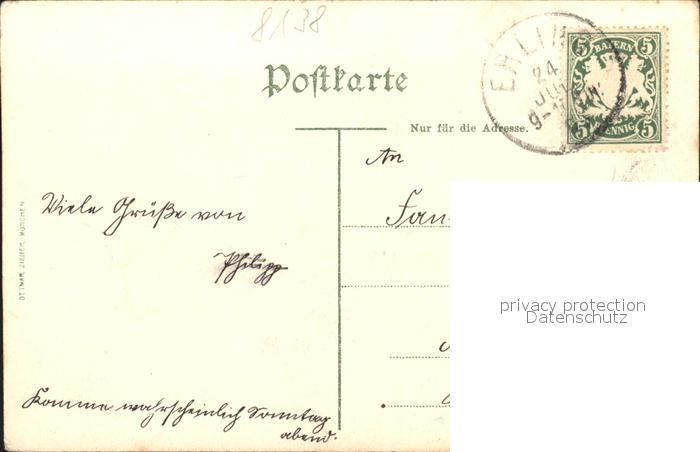 8138
Postkarte
Nur für die Adresse.
5 BAYERN 5
5 PFENNIG 5
ERLING
24
JUL
9-
An
Fan
Viele Grüße von
Philipp
Komme wahrscheinlich Sonntag
abend.
OTTMAR ZIEHER, MÜNCHEN
privacy protection
Datenschutz